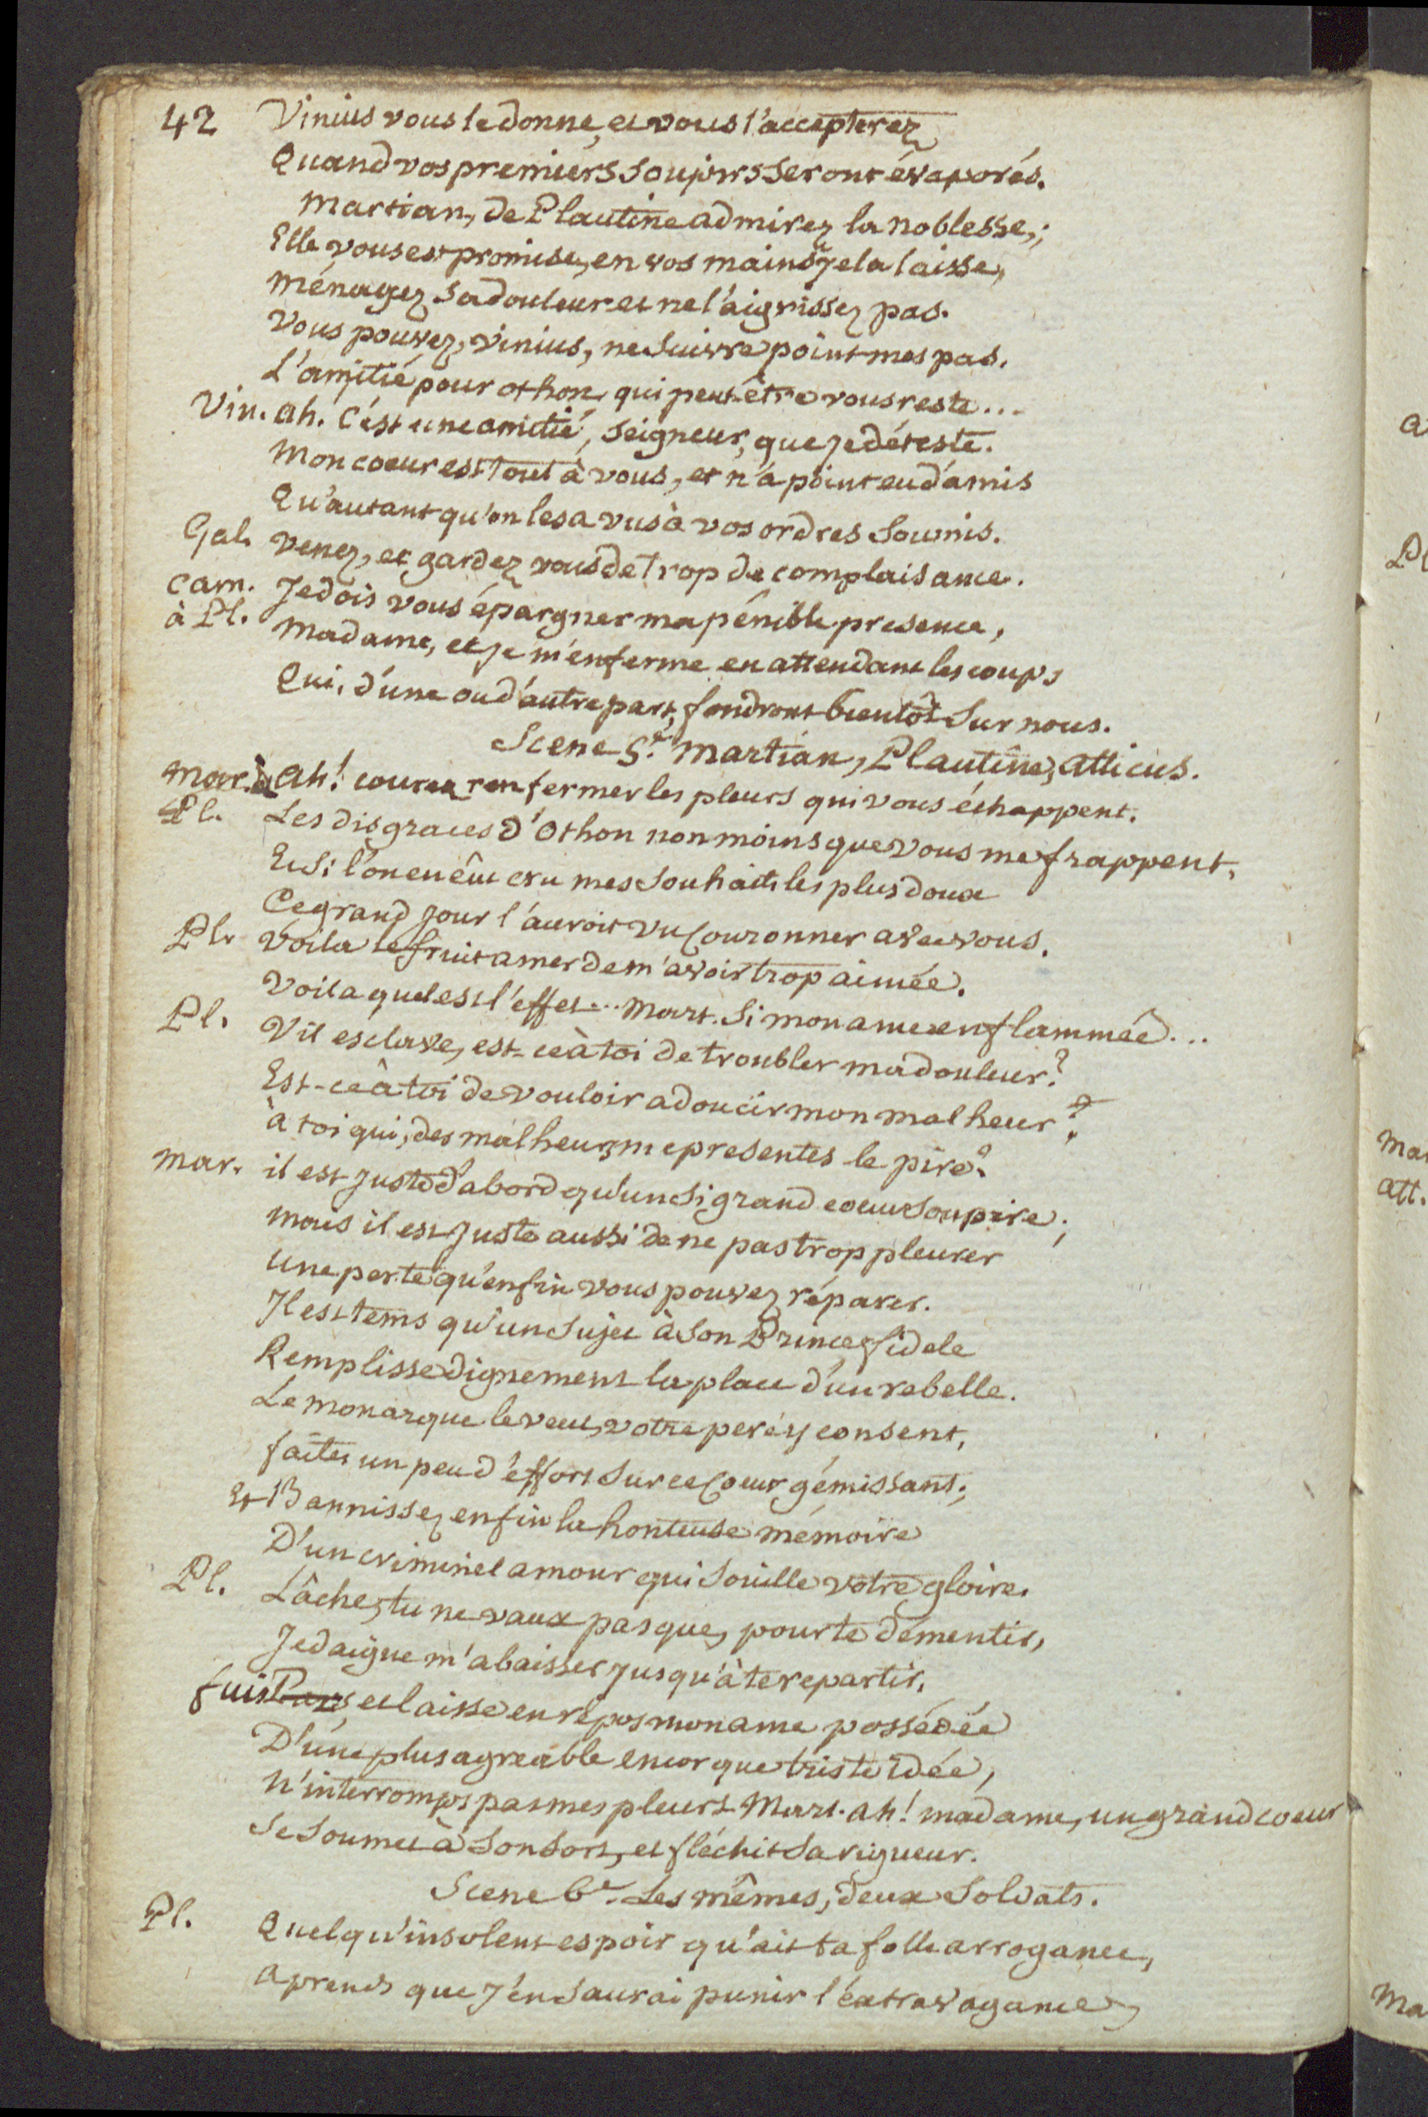 42 Vinius vous le donne, et vous l'accepterez
Quand vos premiers soupirs seront évaporés.
Martian, de Plautine admirez la noblesse;
Elle vous est promise, en vos mains je la laisse,
Ménagez sa douleur et ne l'aigrissez pas.
Vous pouvez, Vinius, ne suivre point mes pas.
L'amitié pour Othon, qui peut-être vous reste...
Vin. ah. C'est une amitié, Seigneur, que je déteste.
Mon coeur est tout à vous, et n'a point eu d'amis
Qu'autant qu'on les a vus à vos ordres Soumis.
Gal. Venez, et gardez vous de trop de complaisance.
Cam. Je dois vous épargner ma pénible presence,
à Pl. Madame, et je m'enferme en attendant les coups
Qui, d'une ou d'autre part, fondront bientôt Sur nous.
Scene 5e. Martian, Plautine, Atticus.
Mar. à Ah! courez renfermer les pleurs qui vous échappent.
Pl. Les disgraces d'Othon non moins que vous me frappent,
Et Si l'on en eût cru mes Souhaits les plus doux
Ce grand jour l'auroit vu Couronner avec vous.
Pl. Voila le fruit amer de m'avoir trop aimée.
Voila quel est l'effet... Mart. Si mon ame enflammée...
Pl. Vil esclave, est-ce à toi de troubler ma douleur?
Est-ce à toi de vouloir adoucir mon malheur?
à toi qui, des malheurs me presentes le pire?
Mar. il est juste d'abord qu'un Si grand coeur Soupire;
Mais il est juste aussi de ne pas trop pleurer
Une perte qu'enfin vous pouvez réparer.
Il est tems qu'un Sujet à Son Prince fidele
Remplisse dignement la place d'un rebelle.
Le monarque le veut, votre pere y consent,
faites un peu d'effort Sur ce Coeur gémissant;
Et Bannissez enfin la honteuse mémoire
D'un criminel amour qui Souille votre gloire.
Pl. Lâche, tu ne vaux pas que, pour te démentir,
Je daigne m'abaisser jusqu'à te repartir,
fuis Pars, et laisse en repos mon ame possédée
D'une plus agreable encor que triste idée,
N'interromps pas mes pleurs. Mart. ah! madame, un grand coeur
Se Soumet à Son Sort, et fléchit Sa rigueur.
Scene 6e. Les mêmes, deux Soldats.
Pl. Quelqu'insolent espoir qu'ait ta folle arrogance,
aprends que j'en Saurai punir l'extravagance,